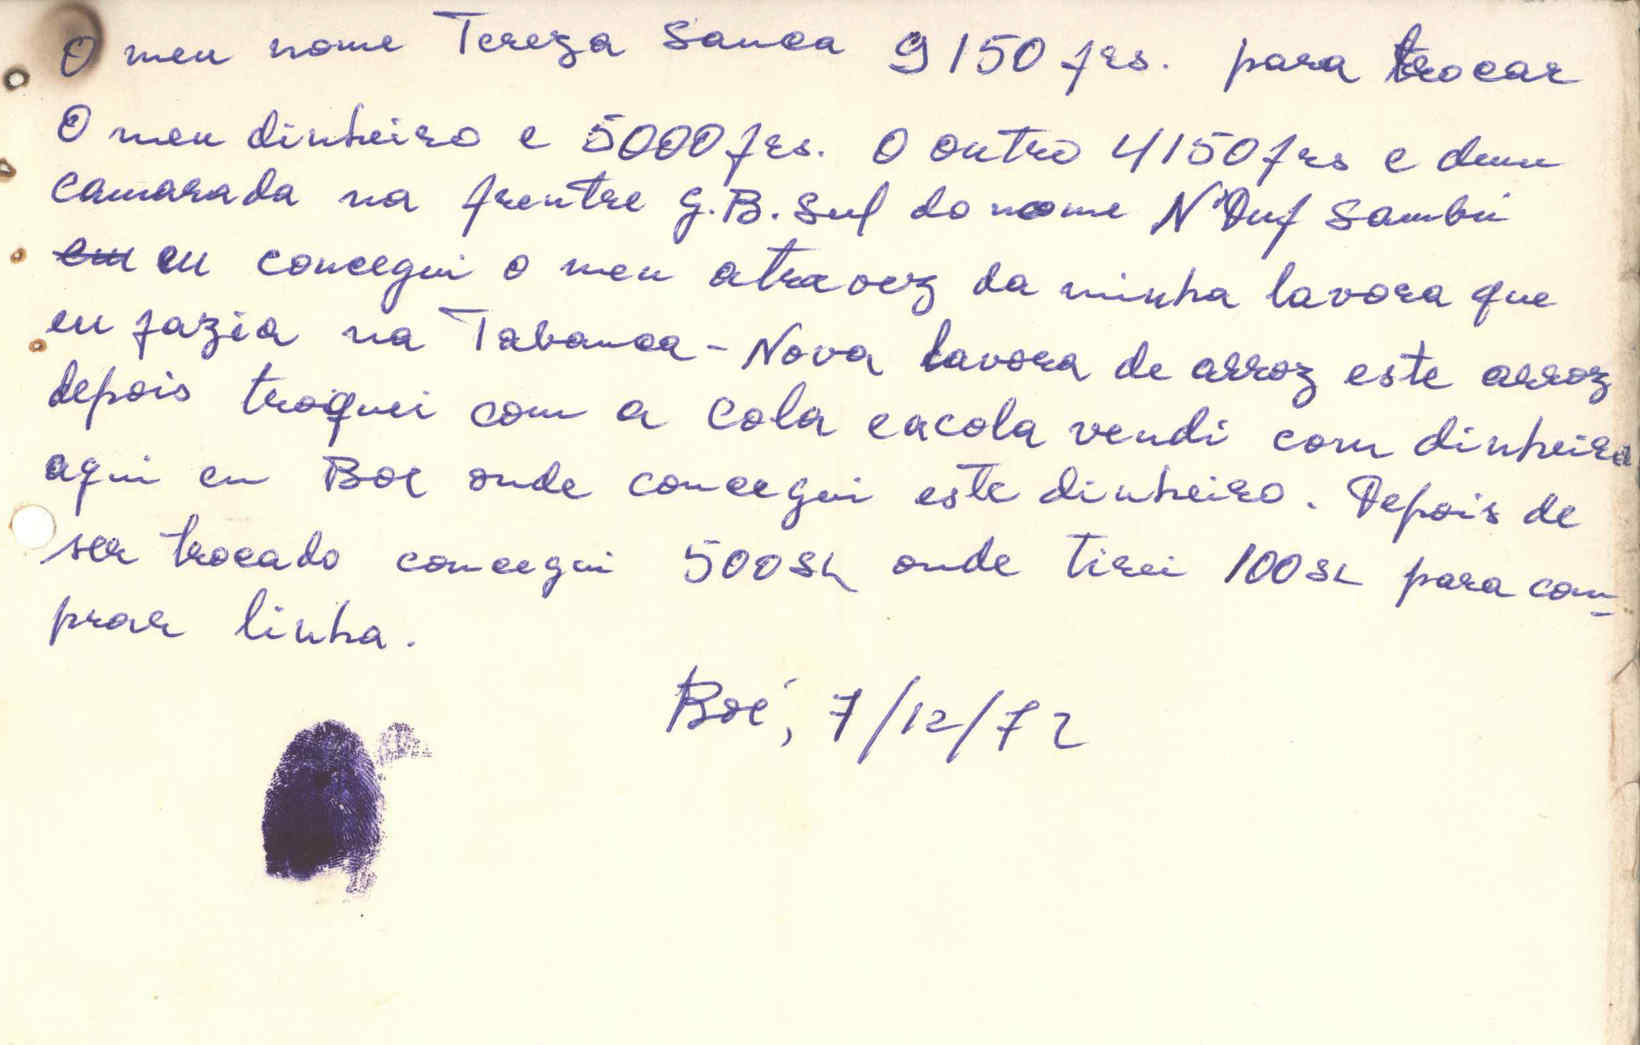 O meu nome Tereza Sanca 9150 frs. para trocar
O meu dinheiro e 5000 frs. O outro 4150 frs e dum
camarada na frentre G.B. Sul do nome N'Duf Sambú
em eu concegui o meu atravez da minha lavora que
eu fazia na Tabanca-Nova lavora de arroz este arroz
depois troquei com a cola eacola vendi com dinheiro
aqui en Boe onde concegui este dinheiro. Depois de
ser trocado concegui 500SL onde tirei 100SL para com-
prar linha.
Boé, 7/12/72